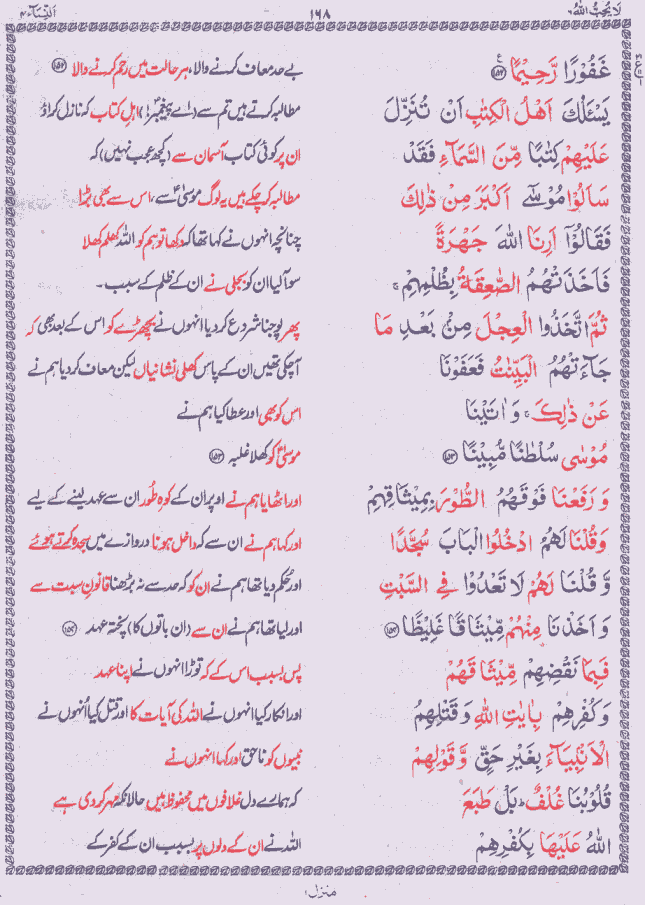 لَا يُحِبُّ اللّٰهُ ٦
١٦٨
اَلنِّسَآء ٤
غَفُوْرًا رَّحِيْمًا ﴿١٥٢﴾ بے حد معاف کرنے والا، ہر حالت میں رحم کرنے والا ﴿١٥٢﴾
يَسْـَٔلُكَ اَهْلُ الْكِتٰبِ اَنْ تُنَزِّلَ مطالبہ کرتے ہیں تم سے (اے پیغمبر!) اہلِ کتاب کہ نازل کراؤ
عَلَيْهِمْ كِتٰبًا مِّنَ السَّمَآءِ فَقَدْ ان پر کوئی کتاب آسمان سے (کچھ عجب نہیں) کہ
سَاَلُوْا مُوْسٰٓى اَكْبَرَ مِنْ ذٰلِكَ مطالبہ کرچکے ہیں یہ لوگ موسیٰؑ سے، اس سے بھی بڑا
فَقَالُوْٓا اَرِنَا اللّٰهَ جَهْرَةً چنانچہ انہوں نے کہا تھا کہ دکھا تو ہم کو اللہ کھلم کھلا
فَاَخَذَتْهُمُ الصّٰعِقَةُ بِظُلْمِهِمْ ۚ سو آلیا ان کو بجلی نے ان کے ظلم کے سبب۔
ثُمَّ اتَّخَذُوا الْعِجْلَ مِنْۢ بَعْدِ مَا پھر پوجنا شروع کردیا انہوں نے بچھڑے کو اس کے بعد بھی کہ
جَآءَتْهُمُ الْبَيِّنٰتُ فَعَفَوْنَا آچکی تھیں ان کے پاس کھلی نشانیاں لیکن معاف کردیا ہم نے
عَنْ ذٰلِكَ ۚ وَ اٰتَيْنَا اس کو بھی اور عطا کیا ہم نے
مُوْسٰى سُلْطٰنًا مُّبِيْنًا ﴿١٥٣﴾ موسیٰؑ کو کھلا غلبہ ﴿١٥٣﴾
وَ رَفَعْنَا فَوْقَهُمُ الطُّوْرَ بِمِيْثَاقِهِمْ اور اٹھایا ہم نے اوپر ان کے کوہِ طُور ان سے عہد لینے کے لیے
وَ قُلْنَا لَهُمُ ادْخُلُوا الْبَابَ سُجَّدًا اور کہا ہم نے ان سے کہ داخل ہونا دروازے میں سجدہ کرتے ہوئے
وَّ قُلْنَا لَهُمْ لَا تَعْدُوْا فِي السَّبْتِ اور حُکم دیا تھا ہم نے ان کو کہ حد سے نہ بڑھنا قانونِ سبت سے
وَ اَخَذْنَا مِنْهُمْ مِّيْثَاقًا غَلِيْظًا ﴿١٥٤﴾ اور لیا تھا ہم نے ان سے (ان باتوں کا) پختہ عہد ﴿١٥٤﴾
فَبِمَا نَقْضِهِمْ مِّيْثَاقَهُمْ پس بسبب اس کے کہ توڑا انہوں نے اپنا عہد
وَ كُفْرِهِمْ بِاٰيٰتِ اللّٰهِ وَ قَتْلِهِمُ اور انکار کیا انہوں نے اللہ کی آیات کا اور قتل کیا اُنہوں نے
الْاَنْۢبِيَآءَ بِغَيْرِ حَقٍّ وَّ قَوْلِهِمْ نبیوں کو ناحق اور کہا انہوں نے
قُلُوْبُنَا غُلْفٌ ؕ بَلْ طَبَعَ کہ ہمارے دل غلافوں میں محفوظ ہیں حالانکہ مہر کردی ہے
اللّٰهُ عَلَيْهَا بِكُفْرِهِمْ اللہ نے ان کے دلوں پر بسبب ان کے کفر کے
منزل ١